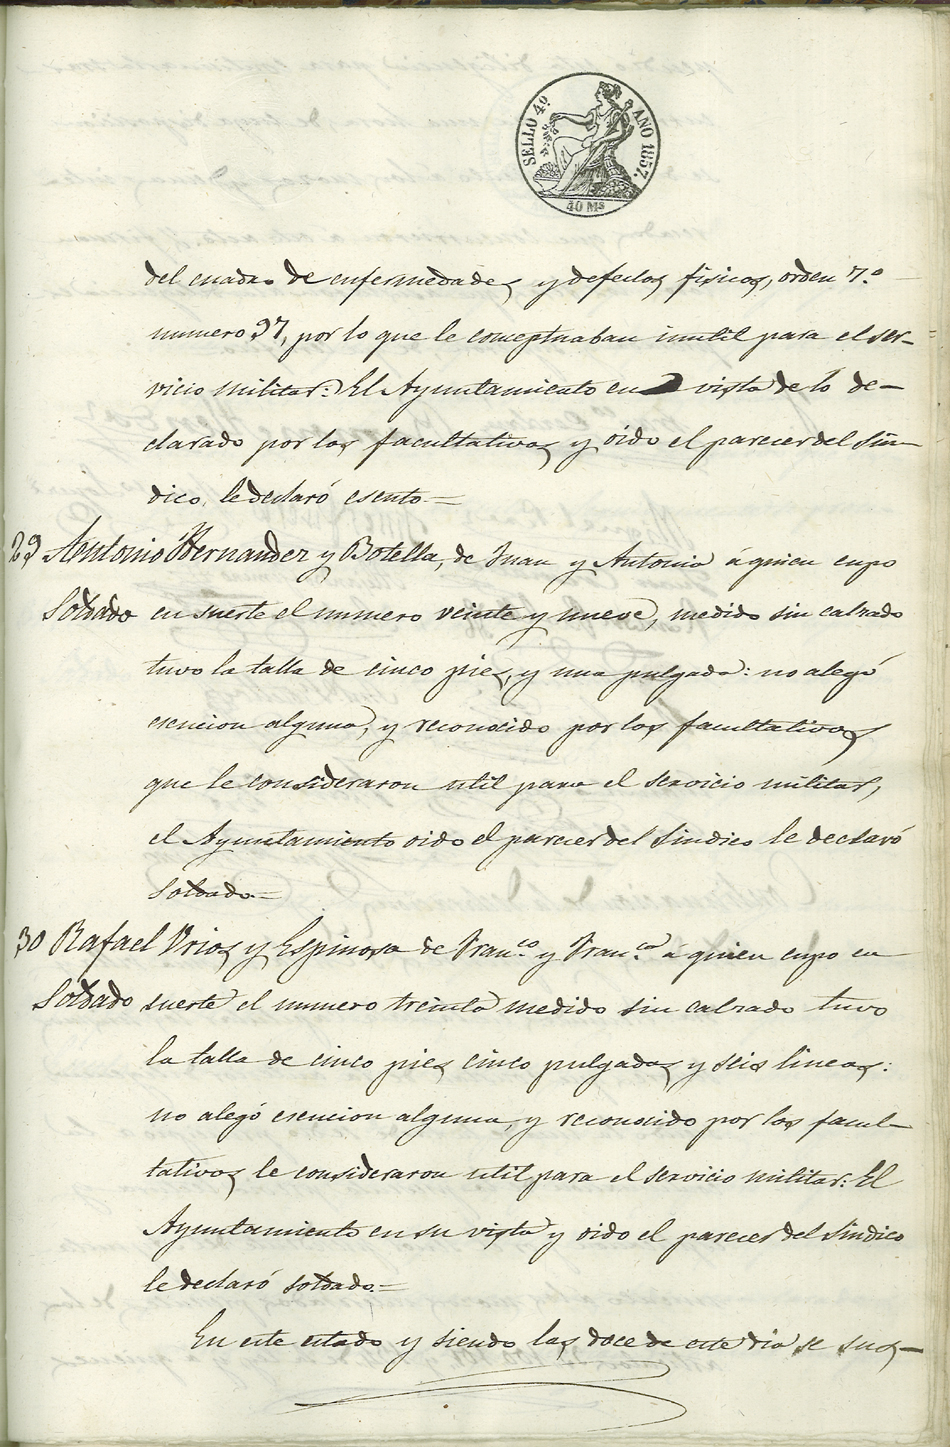 SELLO 4º. AÑO 1857.
40 Ms
del cuadro de enfermedades y defectos fisicos, orden 7.º
numero 97, por lo que le conceptuaban inutil para el ser-
vicio militar: El Ayuntamiento en vista de lo de-
clarado por los facultativos y oido el parecer del Sin-
dico, le declaró esento.=
29 Antonio Hernandez y Botella, de Juan y Antonia á quien cupo
Soldado en suerte el numero veinte y nueve, medido sin calzado
tuvo la talla de cinco pies, y una pulgada: no alegó
esencion alguna, y reconocido por los facultativos
que le consideraron util para el servicio militar,
el Ayuntamiento oido el parecer del Sindico le declaró
Soldado.=
30 Rafael Vrios y Espinosa de Fran.co y Fran.ca á quien cupo en
Soldado suerte el numero treinta medido sin calzado tuvo
la talla de cinco pies cinco pulgadas y seis lineas:
no alegó esencion alguna, y reconocido por los facul-
tativos le consideraron util para el servicio militar: El
Ayuntamiento en su vista y oido el parecer del Sindico
le declaró soldado.=
En este estado y siendo las doce de este dia se sus-